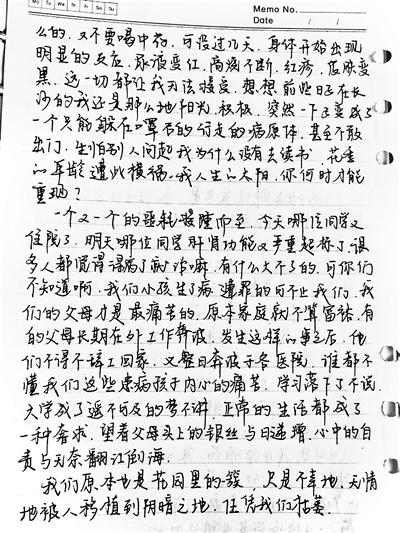 Mo Tu We Th Fr Sa Su
Memo No.
Date / /
么的，又不要喝中药，可没过几天，身体开始出现
明显的反应，尿液变红，高烧不断，红疹，皮肤变
黑，这一切都让我无法接受，想想前些日子在长
沙的我还是那么地阳光，积极，突然一下子变成了
一个只能躲在口罩后的行走的病原体，甚至不敢
出门，生怕别人问起我为什么没有去读书，花季
的年龄遭此横祸，我人生的太阳，你何时才能
重现？
一个又一个的噩耗接踵而至，今天哪位同学又
住院了，明天哪位同学肝肾功能又严重超标了，很
多人都觉得得病了就治嘛，有什么大不了的，可你们
不知道啊，我们小孩生了病遭罪的可不止我们，我
们的父母才是最痛苦的，原本家庭就不算富裕，有
的父母长期在外工作奔波，发生这样的事之后，他
们不得不辞工回家，又整日奔波于各医院，谁都不
懂我们这些患病孩子内心的痛苦，学习落下了不说，
大学成了遥不可及的梦不讲，正常的生活都成了
一种奢求，望着父母头上的银丝与日递增，心中的自
责与无奈翻江倒海。
我们原本也是花园里的葵，只是不幸地，无情
地被人移植到阴暗之地，任凭我们枯萎．